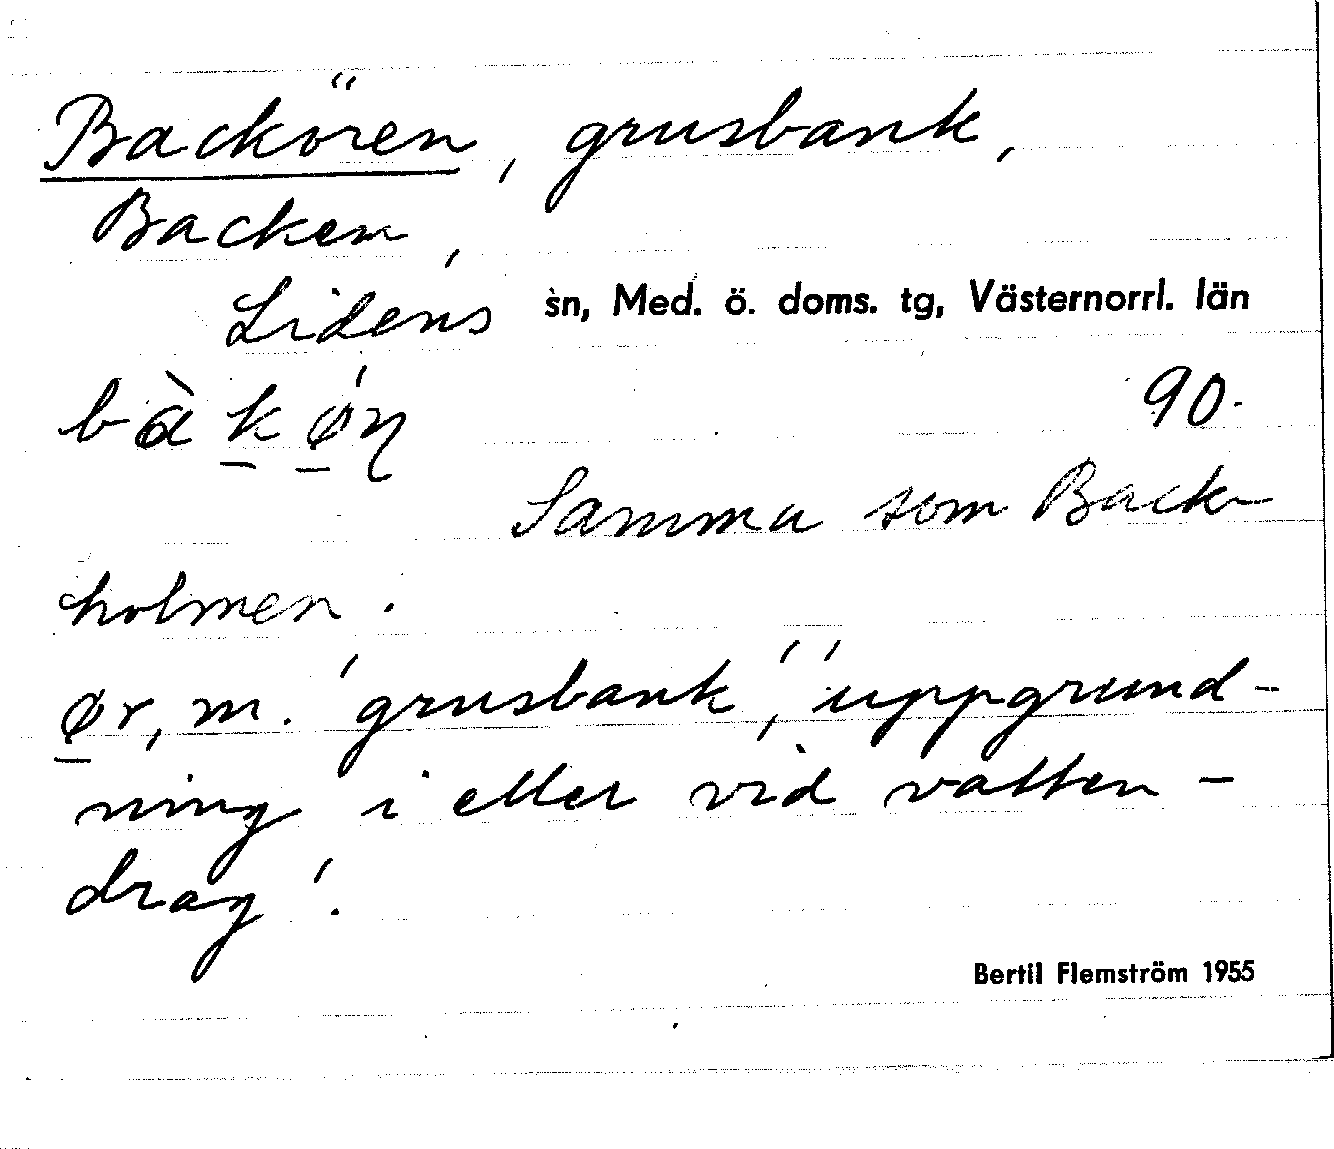 Backören, grusbank,
Backen,
Lidens sn, Med. ö. doms. tg, Västernorrl. län
bàkǿn 90.
Samma som Back-
holmen.
ør, m. 'grusbank', 'uppgrund-
ning i eller vid vatten-
drag'.
Bertil Flemström 1955